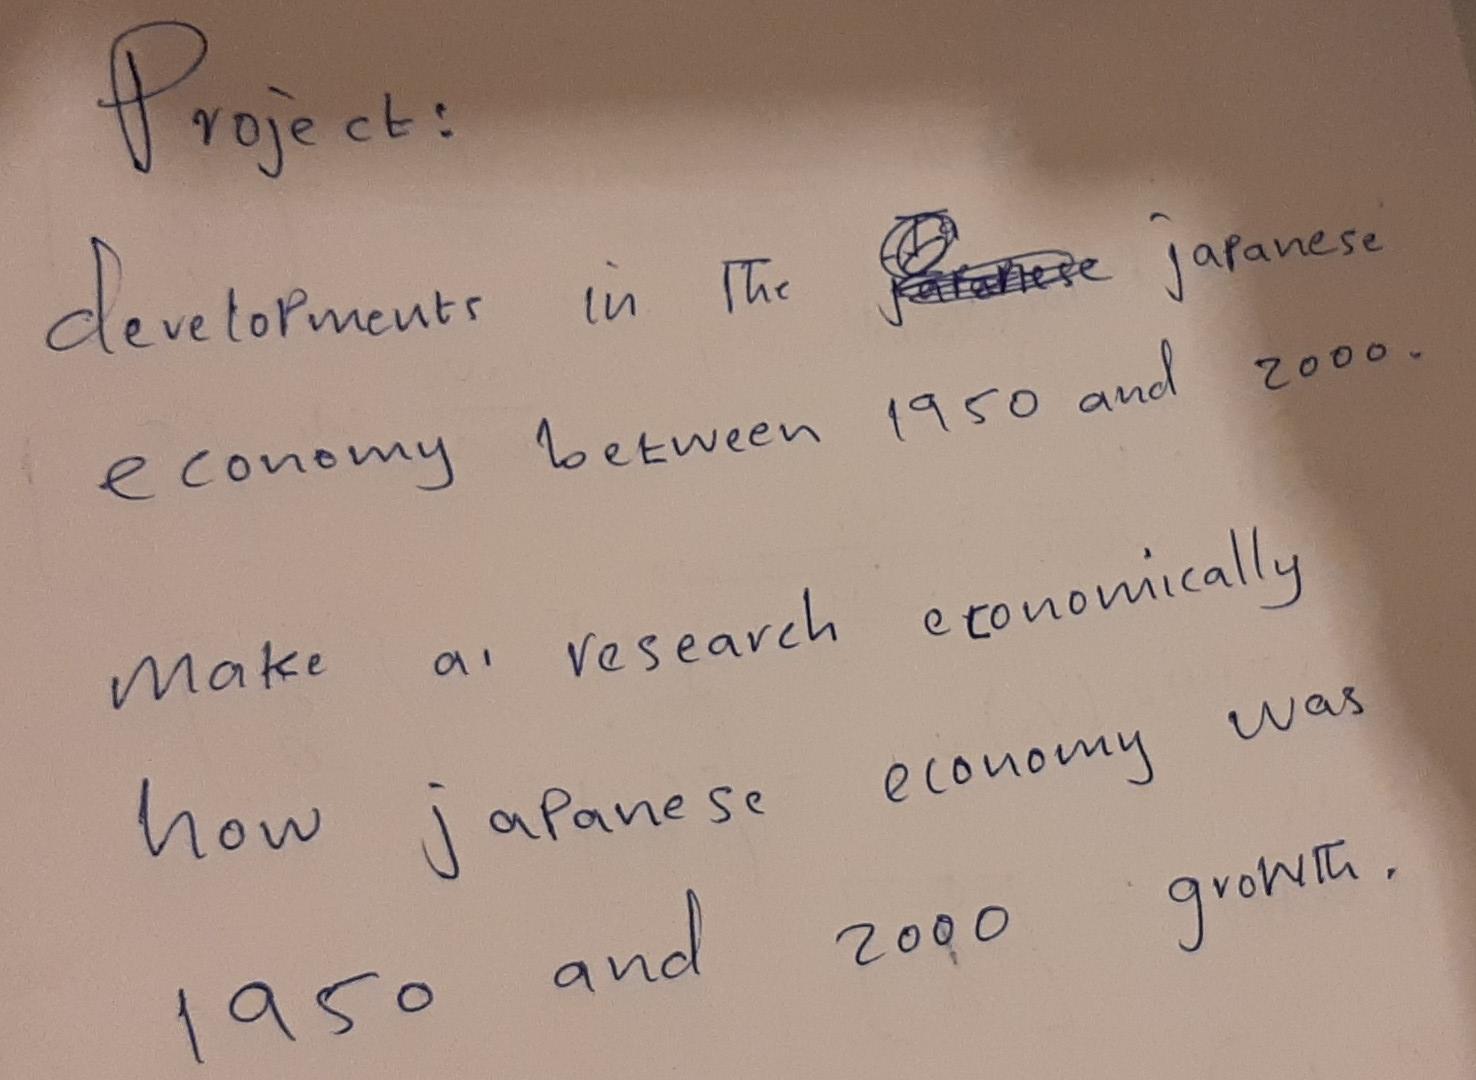 Project:
developments in The japanese
economy between 1950 and 2000.
Make a research economically
how japanese economy was
1950 and 2000 growth.